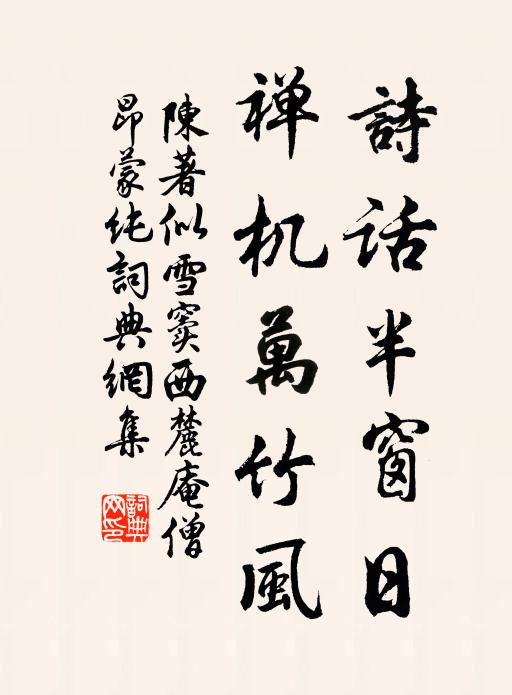 詩話半窗日
禅机萬竹風
陳著似雪竇西麓庵僧
昂蒙纯詞典網集
詞典網印